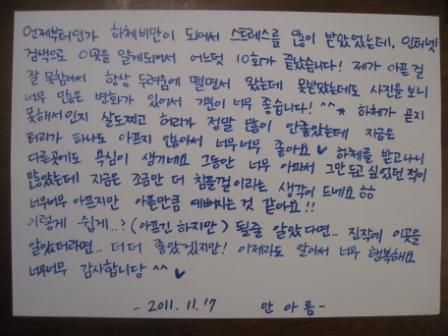 언제부터인가 하체비만이 되어서 스트레스를 많이 받았었는데, 인터넷
검색으로 이곳을 알게되어서 어느덧 10회가 끝났습니다! 제가 아픈걸
잘 못참아서 항상 두려움에 떨면서 왔는데 못받았는데도 사진을 보니
너무 많은 변화가 있어서 기분이 너무 좋습니다! ^^* 하체가 곧지
못해서인지 살도찌고 허리가 정말 많이 안좋았는데 지금은
허리가 하나도 아프지 않아서 너무너무 좋아요♡ 하체를 받고나니
다른곳에도 욕심이 생기네요 그동안 너무 아파서 그만두고 싶었던 적이
많았는데 지금은 조금만 더 참을걸이라는 생각이 드네요 ㅎㅎ
너무너무 아프지만 아픈만큼 예뻐지는 것 같아요!!
이렇게 쉽게..? (아프긴 하지만) 될줄 알았다면.. 진작에 이곳을
알았더라면.. 더 더 좋았겠지만! 이제라도 알아서 너무 행복해요
너무너무 감사합니당 ^^ ♡
- 2011. 11. 17 안아름 -